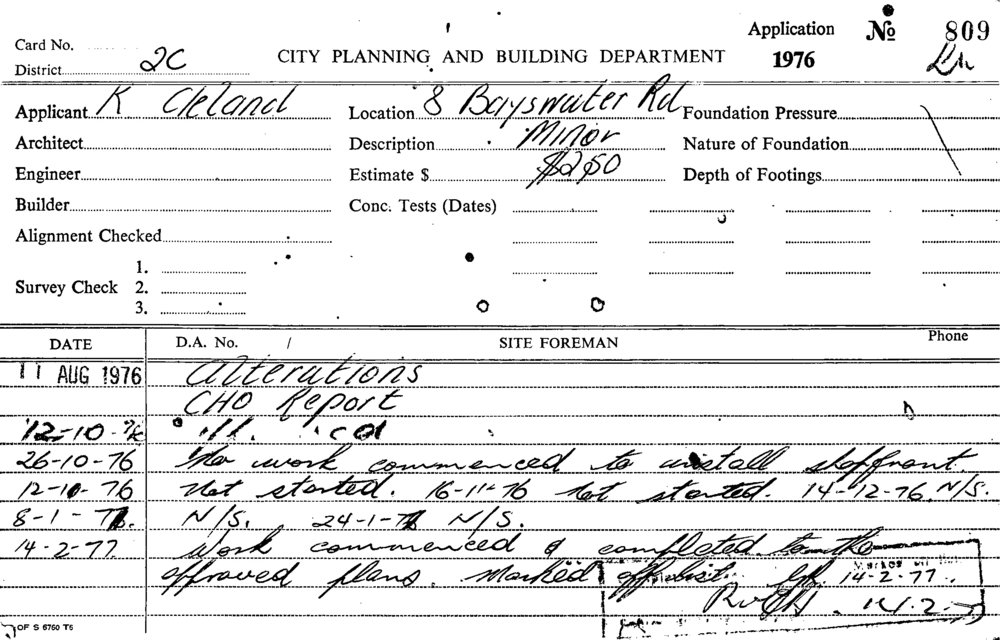 Application № 809
Card No.
1976
District 2C
CITY PLANNING AND BUILDING DEPARTMENT
Applicant K Cleland Location 8 Bayswater Rd Foundation Pressure
Architect Description Minor Nature of Foundation
Engineer Estimate $ $250 Depth of Footings
Builder Conc. Tests (Dates)
Alignment Checked
1.
Survey Check 2.
3.
DATE D.A. No. / SITE FOREMAN Phone
11 AUG 1976 Alterations
CHO Report
12-10-76
26-10-76 No work commenced to install shopfront.
12-10-76 Not started. 16-11-76 Not started. 14-12-76. N/S.
8-1-77. N/S. 24-1-77 N/S.
14-2-77. Work commenced & completed to the
approved plans. Marked off 14-2-77.
14.2.77
OF S 6760 T6